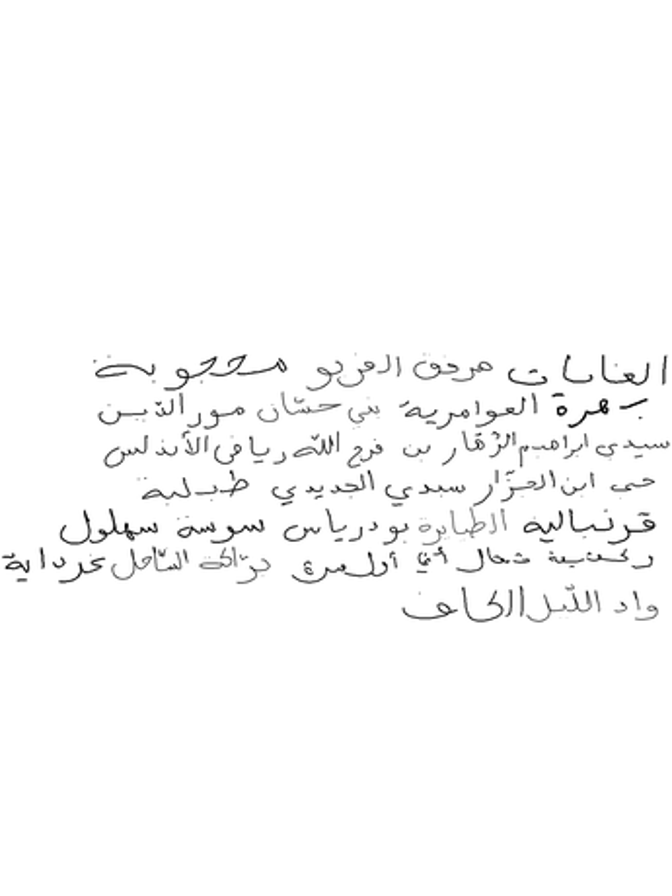 الغابات مرفق الفريو محجوبة
بهرة العوامرية بني حسّان مور الدّين
سيدي ابراهيم الزهّار بن فرج اللّه رياض الأندلس
حي ابن الجزّار سيدي الجديدي طبلبة
قرنبالية الطبايرة بودرياس سوسة سهلول
شمال دراكة السّاحل غرداية
واد اللّيل الكاف